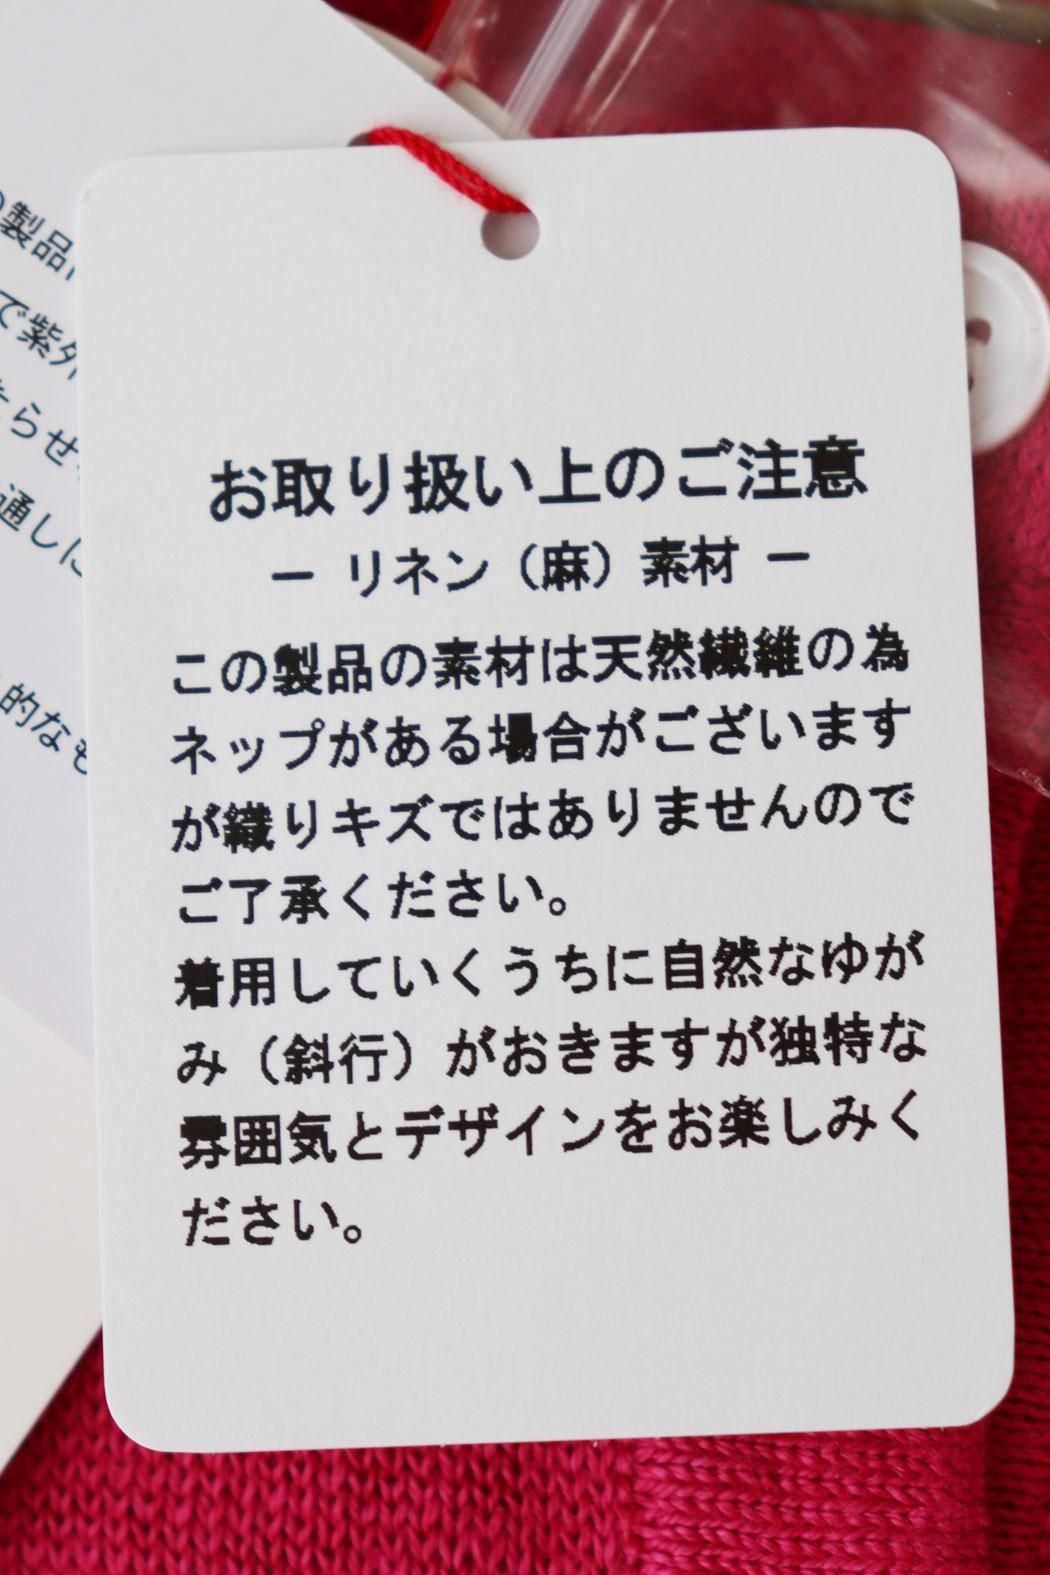 お取り扱い上のご注意
ー リネン（麻）素材 ー
この製品の素材は天然繊維の為
ネップがある場合がございます
が織りキズではありませんので
ご了承ください。
着用していくうちに自然なゆが
み（斜行）がおきますが独特な
雰囲気とデザインをお楽しみく
ださい。
の製品
で紫外
たらせ
通しに
的なも